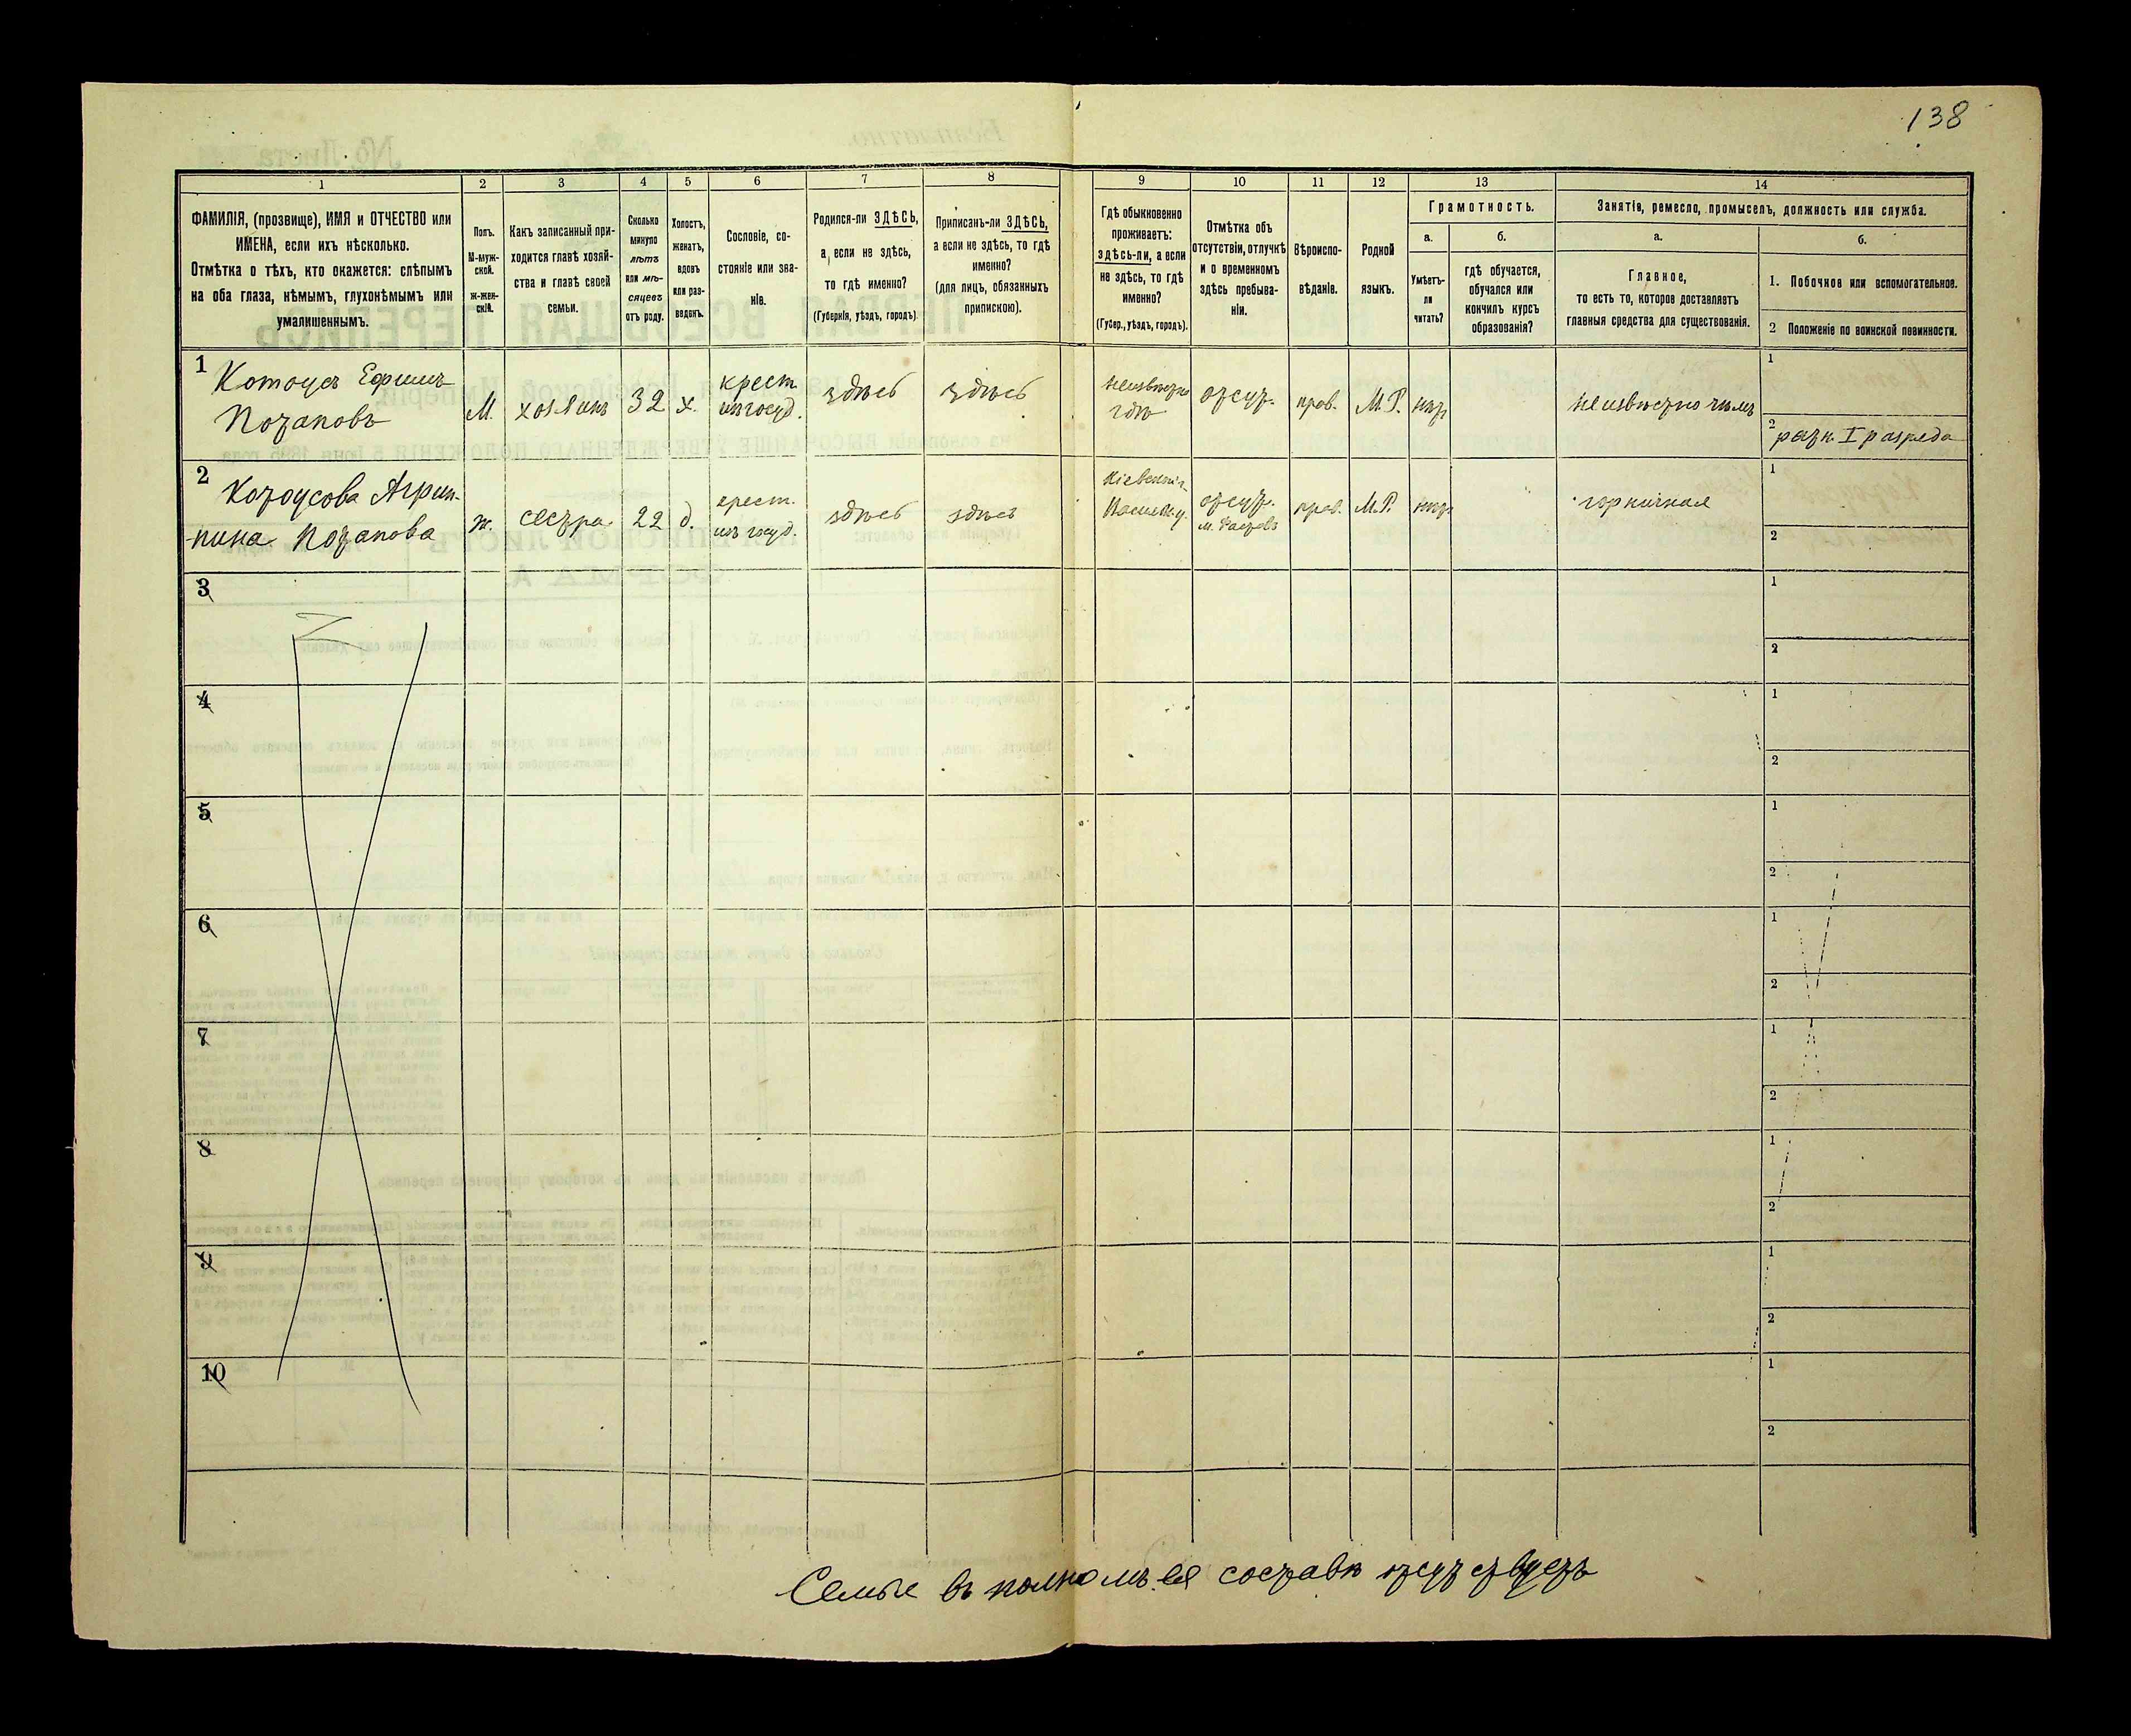 138
1 2 3 4 5 6 7 8 9 10 11 12 13 14
ФАМИЛІЯ, (прозвище), ИМЯ и ОТЧЕСТВО или
ИМЕНА, если ихъ нѣсколько.
Отмѣтка о тѣхъ, кто окажется: слѣпымъ
на оба глаза, нѣмымъ, глухонѣмымъ или
умалишеннымъ.
Полъ.
М-муж-
ской.
ж-жен-
скій.
Какъ записанный при-
ходится главѣ хозяй-
ства и главѣ своей
семьи.
Сколько
минуло
лѣтъ
или мѣ-
сяцевъ
отъ роду.
Холостъ,
женатъ,
вдовъ
или раз-
веденъ.
Сословіе, со-
стояніе или зва-
ніе.
Родился-ли ЗДѢСЬ,
а если не здѣсь,
то гдѣ именно?
(Губернія, уѣздъ, городъ).
Приписанъ-ли ЗДѢСЬ,
а если не здѣсь, то гдѣ
именно?
(для лицъ, обязанныхъ
припискою).
Гдѣ обыкновенно
проживаетъ:
здѣсь-ли, а если
не здѣсь, то гдѣ
именно?
(Губер., уѣздъ, городъ).
Отмѣтка объ
отсутствіи, отлучкѣ
и о временномъ
здѣсь пребыва-
ніи.
Вѣроиспо-
вѣданіе.
Родной
языкъ.
Грамотность.
а.
Умѣетъ-
ли
читать?
б.
гдѣ обучается,
обучался или
кончилъ курсъ
образованія?
Занятіе, ремесло, промыселъ, должность или служба.
а.
Главное,
то есть то, которое доставляетъ
главныя средства для существованія.
б.
1. Побочное или вспомогательное.
2 Положеніе по воинской повинности.
1 Котоусъ Ефимъ
Потаповъ
М.
хозяинъ
32
х.
крест
изъ госуд.
здѣсь
здѣсь
неизвѣстно
гдѣ
отсут.
прав.
М.Р.
нѣт
неизвѣстно чѣмъ
1
2 ратн. I разряда
2 Котоусова Агрип-
пина Потапова
ж.
сестра
22
д.
крест.
изъ госуд.
здѣсь
здѣсь
Кіевской г.
Васильк. у.
отсут.
м. Фастовъ
прав.
М.Р.
нѣт
горничная
1
2
3
1
2
4
1
2
5
1
2
6
1
2
7
1
2
8
1
2
9
1
2
10
1
2
Семья въ полномъ ея составѣ отсутствуетъ